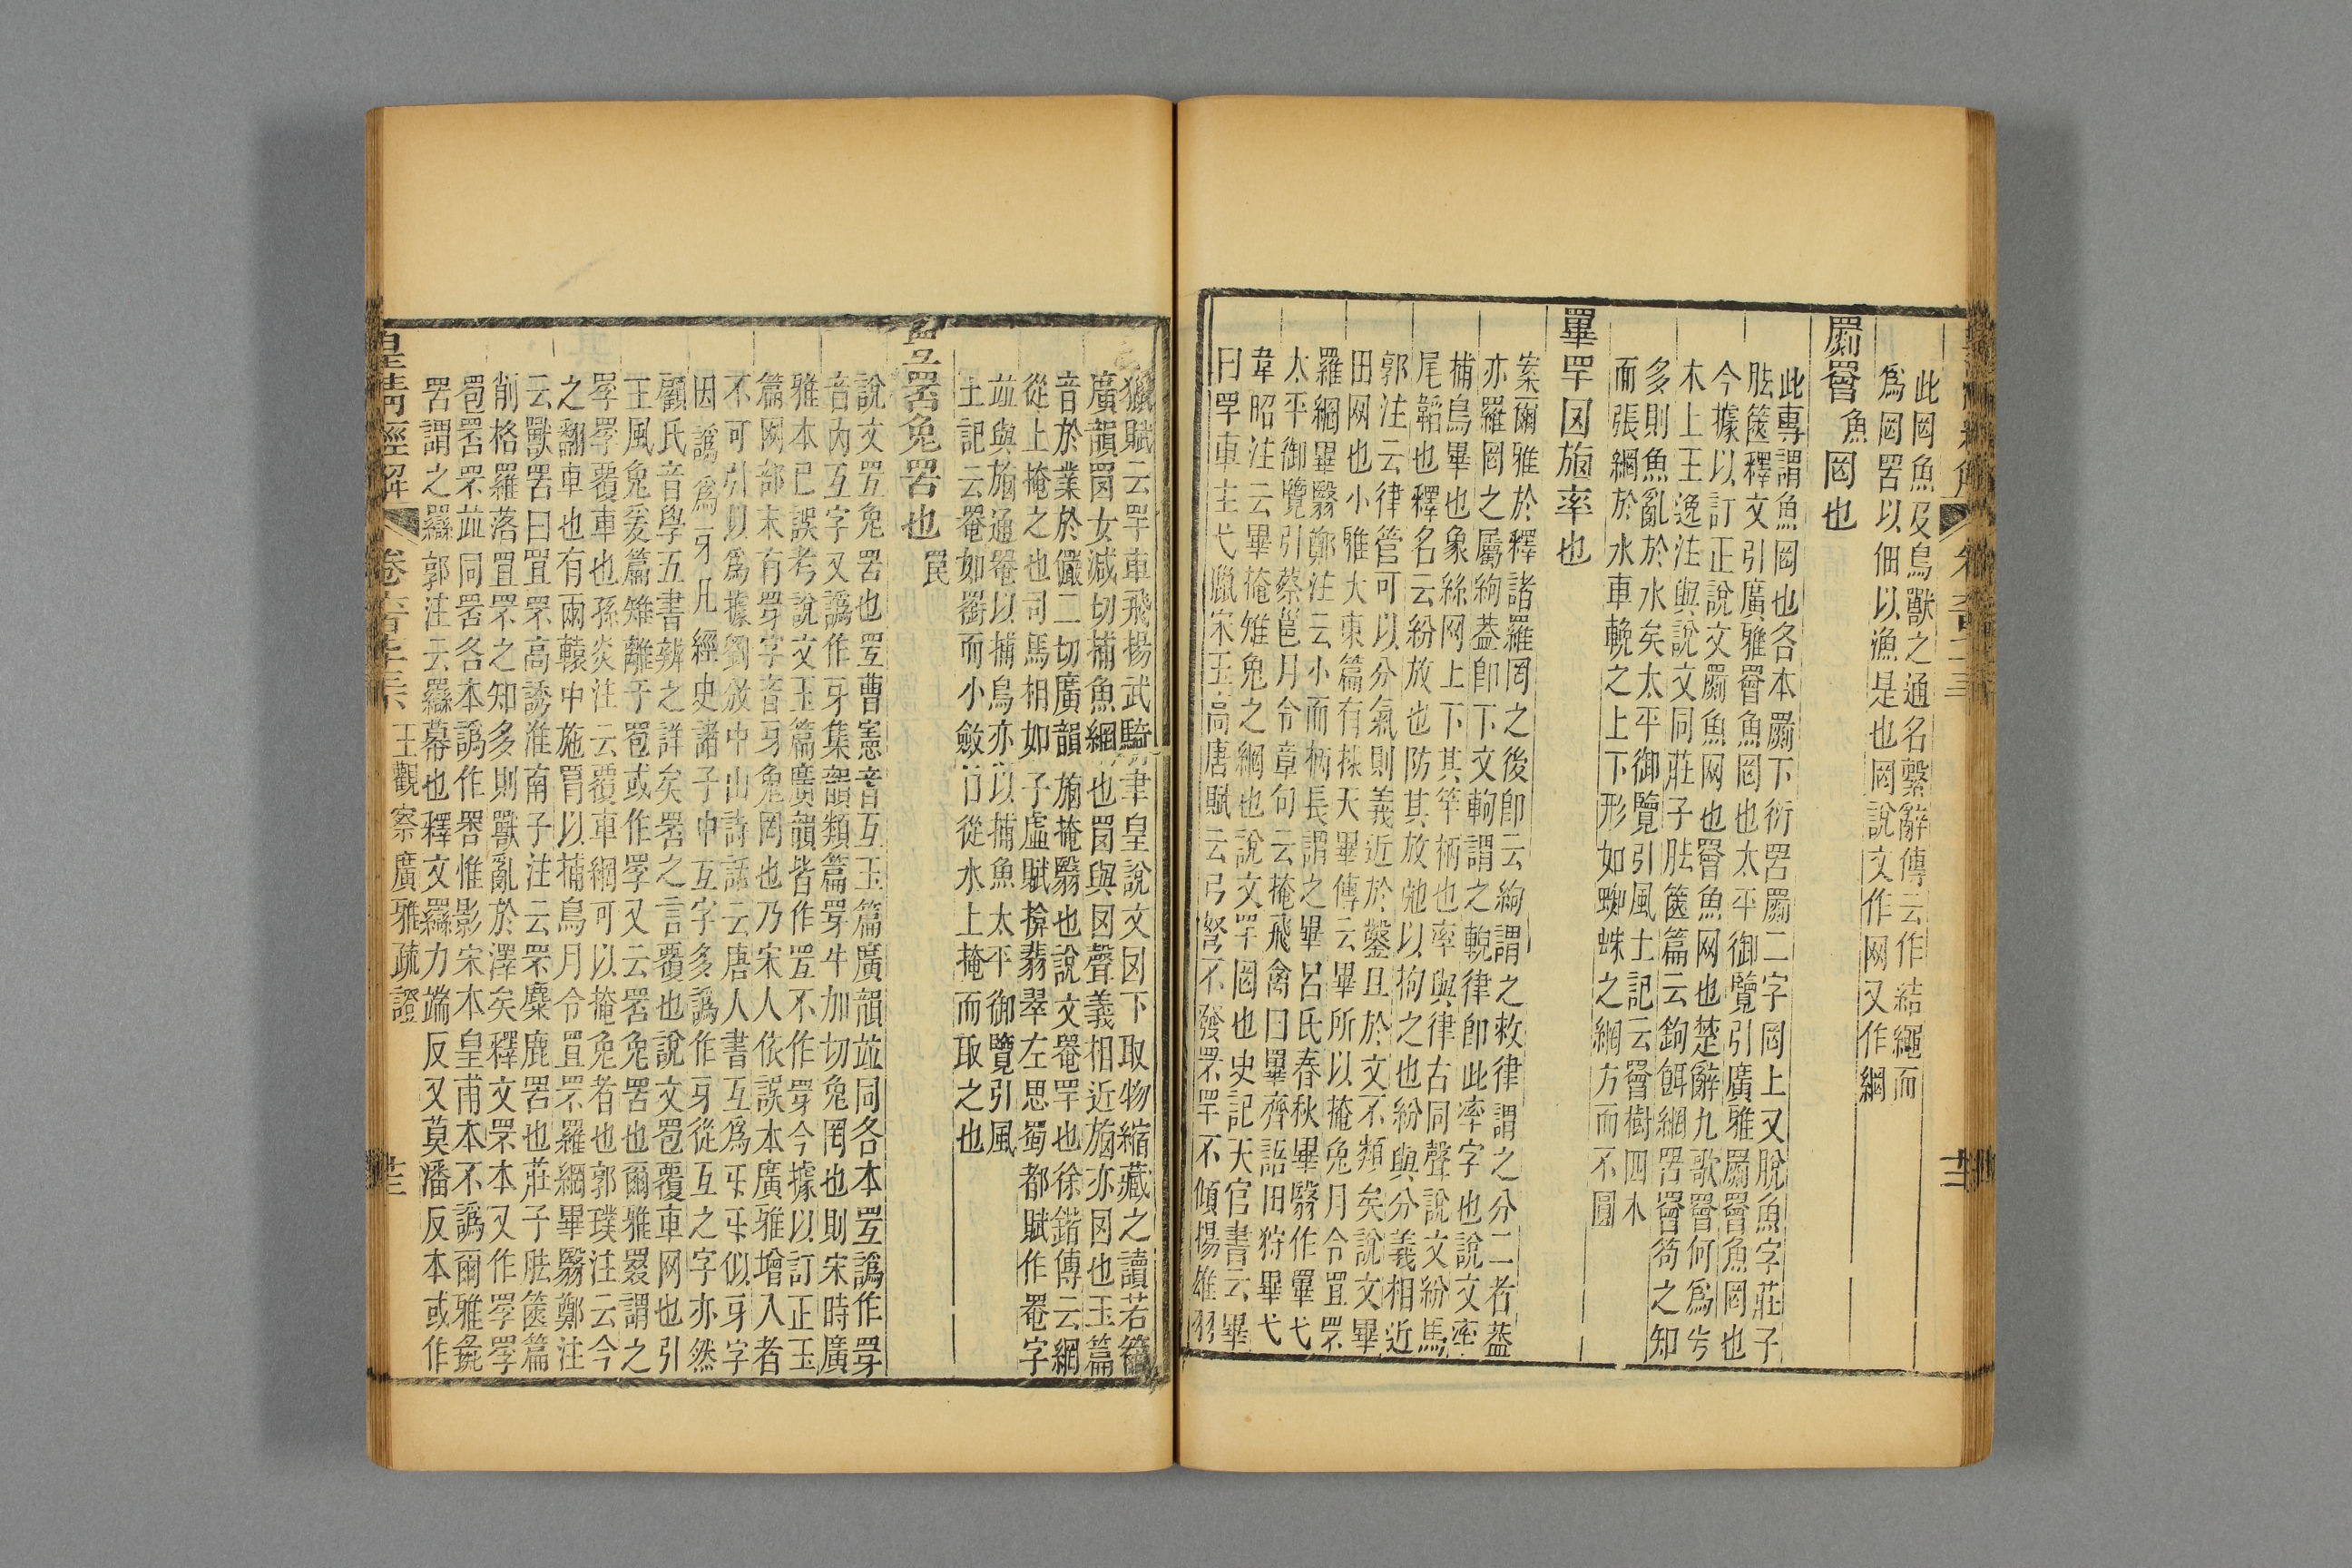 此罔魚及鳥獸之通名繫辭傳云作結繩而
爲罔罟以佃以漁是也罔說文作网又作網
罽罾魚罔也
此專謂魚罔也各本罽下衍罟罽二字罔上又脫魚字莊子
胠篋釋文引廣雅罾魚罔也太平御覽引廣雅罽罾魚罔也
今據以訂正說文罽魚网也罾魚网也楚辭九歌罾何爲兮
木上王逸注與說文同莊子胠篋篇云鉤餌網罟罾笱之知
多則魚亂於水矣太平御覽引風土記云罾樹四木
而張網於水車輓之上下形如蜘蛛之網方而不圓
罼罕囡㡓率也
案爾雅於釋諸羅罔之後即云絇謂之救律謂之分二者蓋
亦羅罔之屬絇蓋即下文䡋謂之䡔律即此率字也說文率
捕鳥畢也象絲网上下其竿柄也率與律古同聲說文紛馬
尾韜也釋名云紛放也防其放弛以拘之也紛與分義相近
郭注云律管可以分氣則義近於鑿且於文不類矣說文畢
田网也小雅大東篇有捄天畢傳云畢所以掩兔月令罝罘
羅網畢翳鄭注云小而柄長謂之畢呂氏春秋畢翳作罼弋
太平御覽引蔡邕月令章句云掩飛禽曰畢齊語田狩畢弋
韋昭注云畢掩雉兔之網也說文罕罔也史記天官書云畢
曰罕車主弋獵宋玉高唐賦云弓弩不發罘罕不傾揚雄羽
獵賦云罕車飛揚武騎聿皇說文囡下取物縮藏之讀若籋
廣韻䍏女減切捕魚網也䍏與囡聲義相近㡓亦囡也玉篇
音於業於儼二切廣韻㡓掩翳也說文罨罕也徐鍇傳云網
從上掩之也司馬相如子虛賦揜翡翠左思蜀都賦作罨字
竝與㡓通罨以捕鳥亦以捕魚太平御覽引風
土記云罨如䍤而小斂口從水上掩而取之也
罝𦊨罟兔罟也罠
說文罝兔罟也𦊨曹憲音互玉篇廣韻竝同各本𦊨譌作罞
音內互字又譌作牙集韻類篇罞牛加切兔罔也則宋時廣
雅本已誤考說文玉篇廣韻皆作罝不作罞今據以訂正玉
篇网部末有罞字音牙兔罔也乃宋人依誤本廣雅增入者
不可引以爲據劉攽中山詩話云唐人書互爲㸦㸦似牙字
因譌爲牙凡經史諸子中互字多譌作牙從互之字亦然
顧氏音學五書辨之詳矣罟之言覆也說文罦覆車网也引
王風兔爰篇雉離于罦或作罦又云罟兔罟也爾雅罬謂之
罦罦覆車也孫炎注云覆車網可以掩兔者也郭璞注云今
之翻車也有兩轅中施罥以捕鳥月令罝罘羅網畢翳鄭注
云獸罟曰罝罘高誘淮南子注云罘麋鹿罟也莊子胠篋篇
削格羅落罝罘之知多則獸亂於澤矣釋文罘本又作罦罦
罦罟罘竝同罟各本譌作罯惟影宋本皇甫本不譌爾雅彘
罟謂之羉郭注云羉幕也釋文羉力端反又莫潘反本或作
皇清經解
卷六百七十三
王觀察廣雅疏證
十三